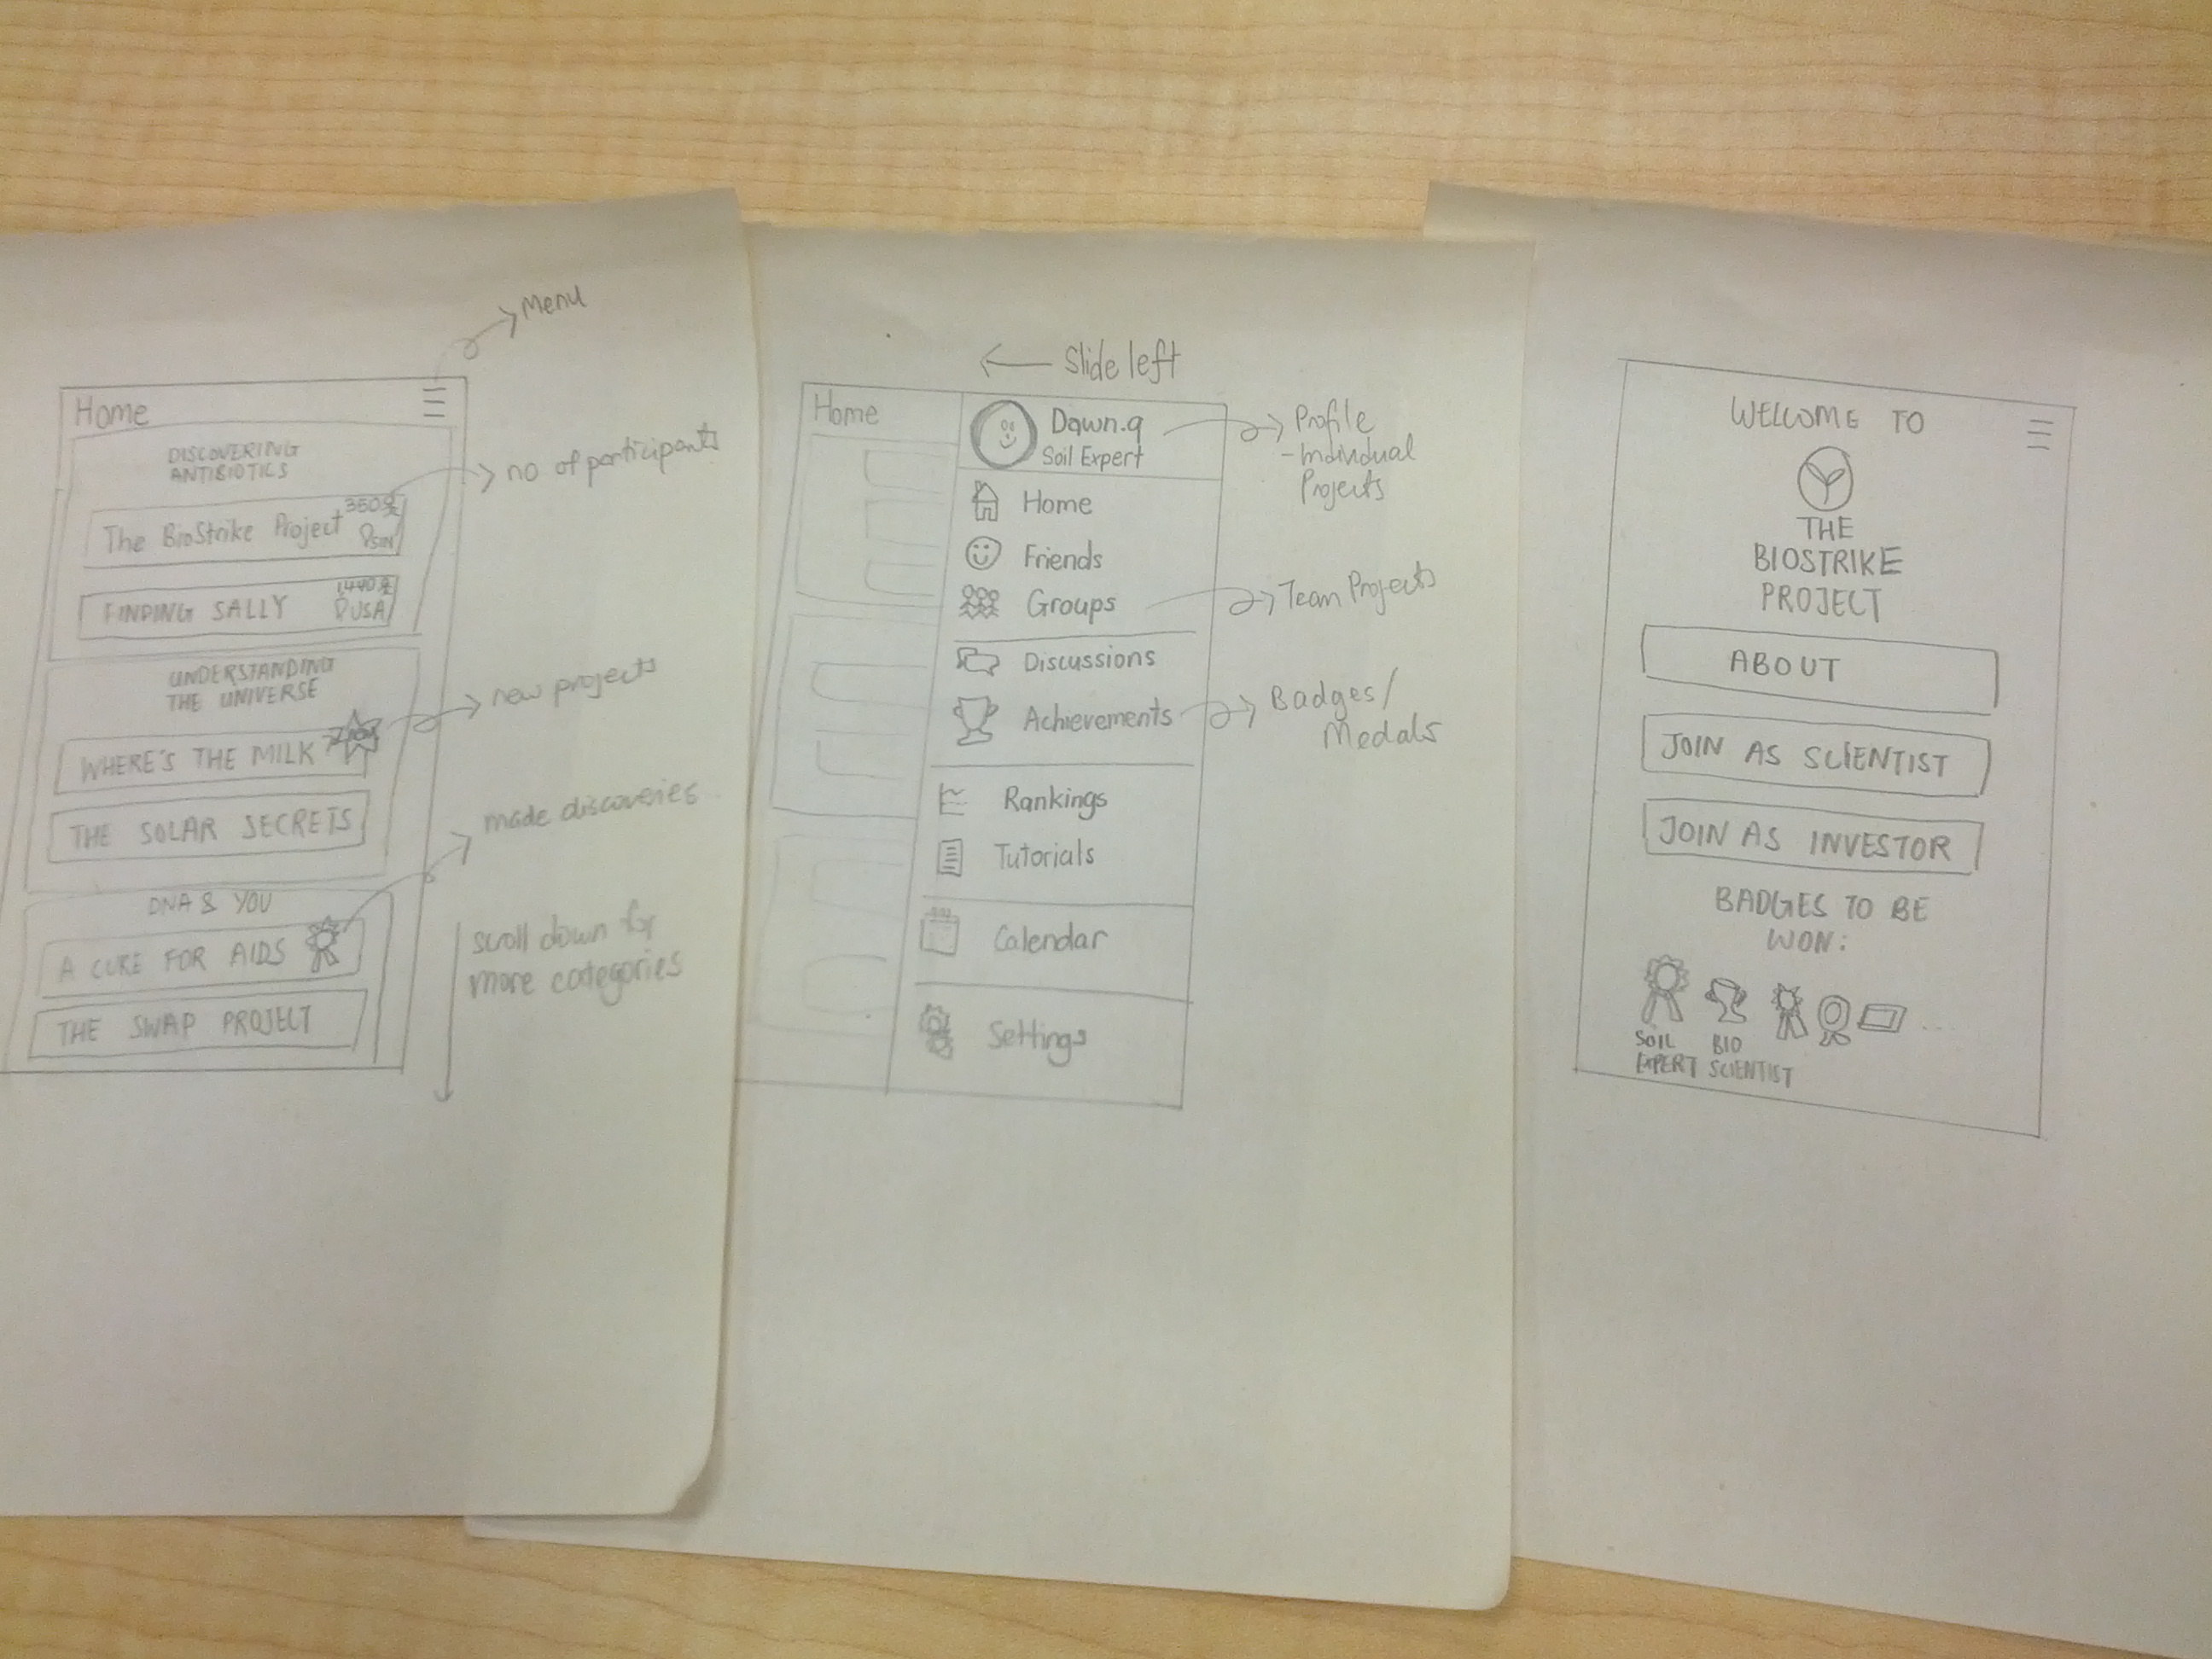 Menu
Home
DISCOVERING
ANTIBIOTICS
no of participants
350
The BioStrike Project
SIN
1,440
FINDING SALLY
USA
UNDERSTANDING
THE UNIVERSE
new projects
WHERE'S THE MILK
THE SOLAR SECRETS
made discoveries
DNA & YOU
A CURE FOR AIDS
THE SWAP PROJECT
scroll down for
more categories
Slide left
Home
Dawn.q
Soil Expert
Profile
- Individual
Projects
Home
Friends
Groups
Team Projects
Discussions
Achievements
Badges/
Medals
Rankings
Tutorials
Calendar
Settings
WELCOME TO
THE
BIOSTRIKE
PROJECT
ABOUT
JOIN AS SCIENTIST
JOIN AS INVESTOR
BADGES TO BE
WON:
SOIL
EXPERT
BIO
SCIENTIST